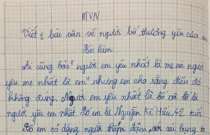 MVN
Viết 1 bài văn về người bố thương yêu của em
Bài làm
Ai cũng bảo "người em yêu nhất là mẹ ai người
yêu mẹ nhất là em" nhưng em cho rằng điều đó
không đúng. Người em yêu nhất là bố cô tê là
người yêu em nhất. Bố em là Nguyễn Kế Hiển, 42 tuổi.
Bố em có dáng người thậm đậm, đôi